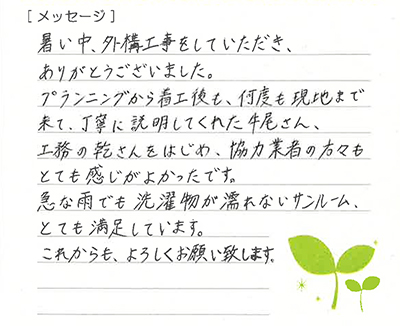 [メッセージ]
暑い中、外構工事をしていただき、
ありがとうございました。
プランニングから着工後も、何度も現地まで
来て、丁寧に説明してくれた牛尾さん、
工務の乾さんをはじめ、協力業者の方々も
とても感じがよかったです。
急な雨でも洗濯物が濡れないサンルーム、
とても満足しています。
これからも、よろしくお願い致します。